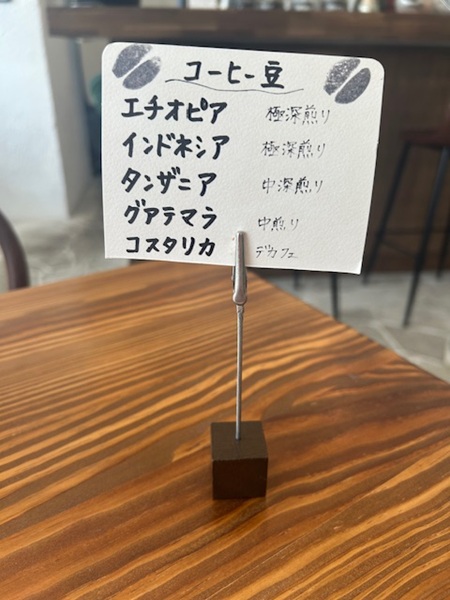 コーヒー豆
エチオピア 極深煎り
インドネシア 極深煎り
タンザニア 中深煎り
グアテマラ 中煎り
コスタリカ デカフェ